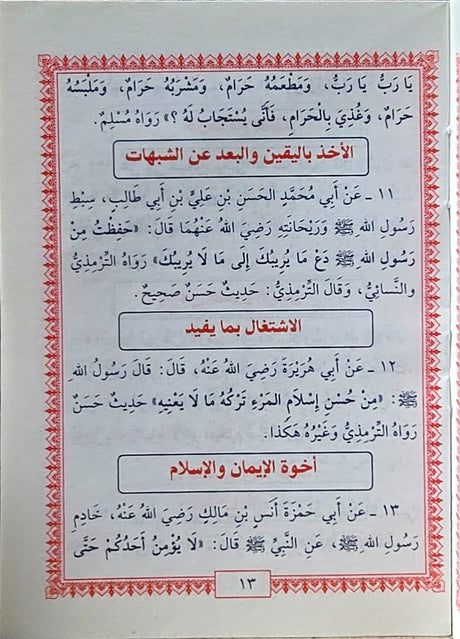 يَا رَبُّ يَا رَبُّ، وَمَطْعَمُهُ حَرَامٌ، وَمَشْرَبُهُ حَرَامٌ، وَمَلْبَسُهُ
حَرَامٌ، وَغُذِيَ بِالْحَرَامِ، فَأَنَّى يُسْتَجَابُ لَهُ؟» رَوَاهُ مُسْلِمٌ.
الأخذ باليقين والبعد عن الشبهات
١١ ـ عَنْ أَبِي مُحَمَّدٍ الحَسَنِ بْنِ عَلِيِّ بْنِ أَبِي طَالِبٍ، سِبْطِ
رَسُولِ اللهِ ﷺ وَرَيْحَانَتِهِ رَضِيَ اللهُ عَنْهُمَا قَالَ: «حَفِظْتُ مِنْ
رَسُولِ اللهِ ﷺ دَعْ مَا يُرِيبُكَ إِلَى مَا لَا يُرِيبُكَ» رَوَاهُ التِّرْمِذِيُّ
والنَّسائِيُّ، وَقَالَ التِّرْمِذِيُّ: حَدِيثٌ حَسَنٌ صَحِيحٌ.
الاشتغال بما يفيد
١٢ ـ عَنْ أَبِي هُرَيْرَةَ رَضِيَ اللهُ عَنْهُ، قَالَ: قَالَ رَسُولُ اللهِ
ﷺ: «مِنْ حُسْنِ إِسْلَامِ المَرْءِ تَرْكُهُ مَا لَا يَعْنِيهِ» حَدِيثٌ حَسَنٌ
رَوَاهُ التِّرْمِذِيُّ وَغَيْرُهُ هَكَذَا.
أخوة الإيمان والإسلام
١٣ ـ عَنْ أَبِي حَمْزَةَ أَنَسِ بْنِ مَالِكٍ رَضِيَ اللهُ عَنْهُ، خَادِمِ
رَسُولِ اللهِ ﷺ، عَنِ النَّبِيِّ ﷺ قَالَ: «لَا يُؤْمِنُ أَحَدُكُمْ حَتَّى
١٣